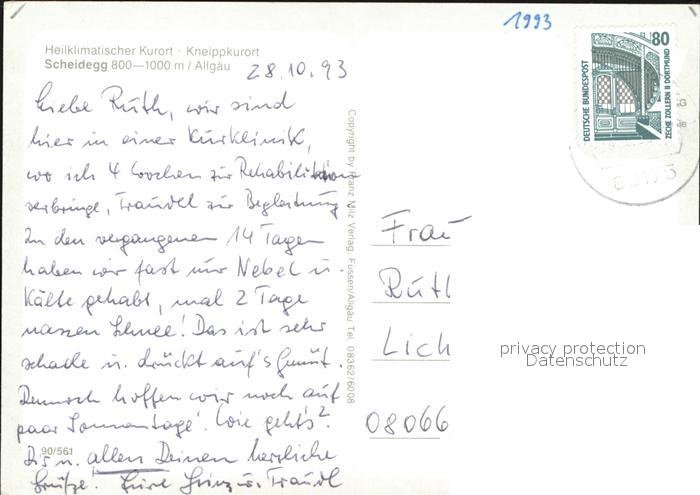 1993
Heilklimatischer Kurort · Kneippkurort
Scheidegg 800—1000 m / Allgäu
28.10.93
Liebe Ruth, wir sind
hier in einer Kurklinik,
wo ich 4 Wochen zur Rehabilitation
verbringe, Traudl zur Begleitung
In den vergangenen 14 Tagen
haben wir fast nur Nebel u.
Kälte gehabt, mal 2 Tage
nassen Schnee! Das ist sehr
schade u. drückt auf's Gemüt.
Dennoch hoffen wir noch auf
paar Sonnentage! Wie geht's?
Dir u. allen Deinen herzliche
Grüße! Eure Heinz u. Traudl
90/561
Copyright by Franz Milz Verlag, Füssen/Allgäu Tel. 08362/6008
80
DEUTSCHE BUNDESPOST
ZECHE ZOLLERN II DORTMUND
Frau
Ruth
Lich
08066
privacy protection
Datenschutz